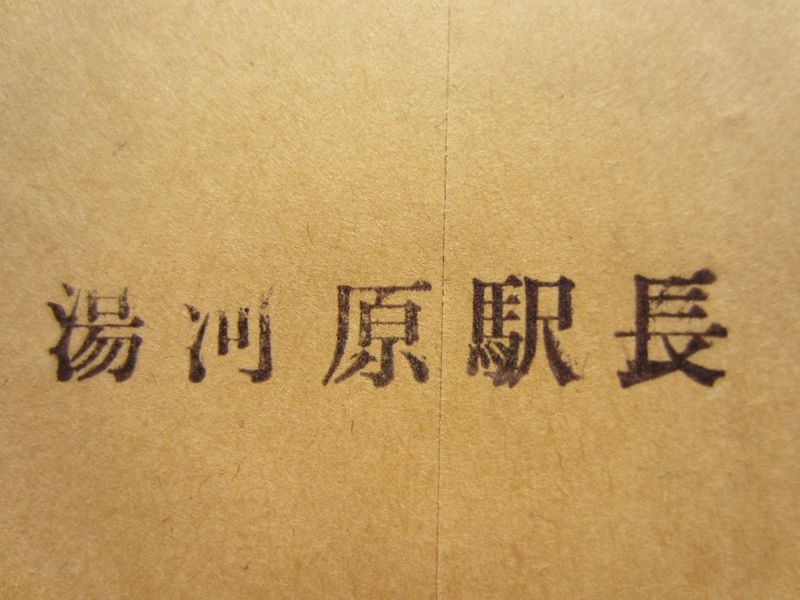 湯河原駅長